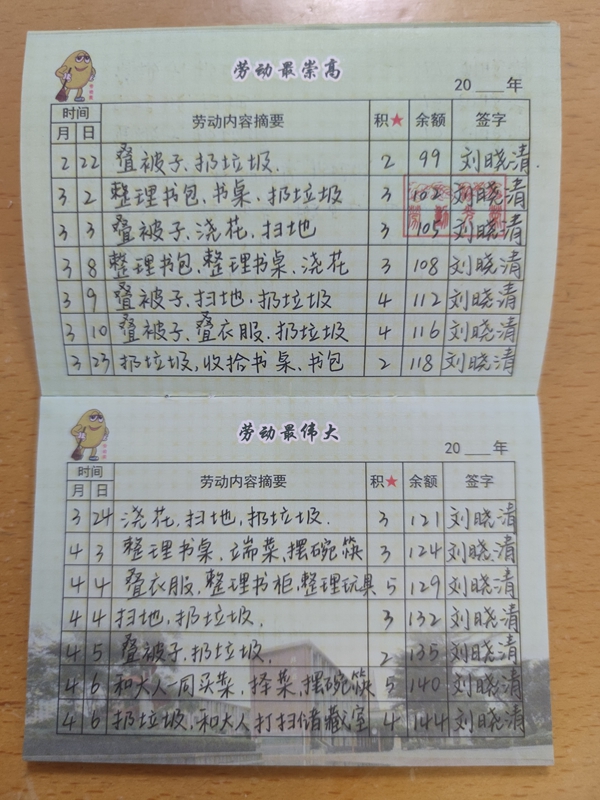 劳动最崇高
20 年
时间 劳动内容摘要 积★ 余额 签字
月 日
2 22 叠被子、扔垃圾. 2 99 刘晓清.
3 2 整理书包、书桌、扔垃圾 3 102 刘晓清
3 3 叠被子、浇花、扫地 3 105 刘晓清
3 8 整理书包、整理书桌、浇花 3 108 刘晓清
3 9 叠被子、扫地、扔垃圾 4 112 刘晓清
3 10 叠被子、叠衣服、扔垃圾 4 116 刘晓清
3 23 扔垃圾,收拾书桌、书包 2 118 刘晓清
劳动最伟大
20 年
时间 劳动内容摘要 积★ 余额 签字
月 日
3 24 浇花,扫地,扔垃圾. 3 121 刘晓清
4 3 整理书桌、端菜、摆碗筷 3 124 刘晓清
4 4 叠衣服,整理书柜,整理玩具 5 129 刘晓清
4 4 扫地,扔垃圾, 3 132 刘晓清
4 5 叠被子,扔垃圾, 2 135 刘晓清
4 6 和大人一同买菜,择菜,摆碗筷 5 140 刘晓清
4 6 扔垃圾,和大人打扫储藏室 4 144 刘晓清